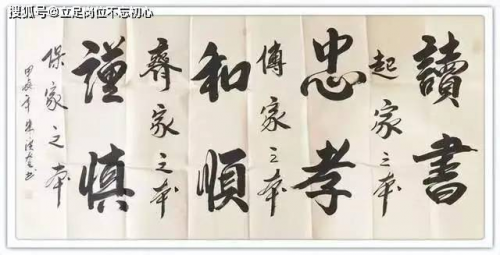 搜狐号@立足岗位不忘初心
讀書
起家之本
忠孝
傳家之本
和順
齊家之本
謹慎
保家之本